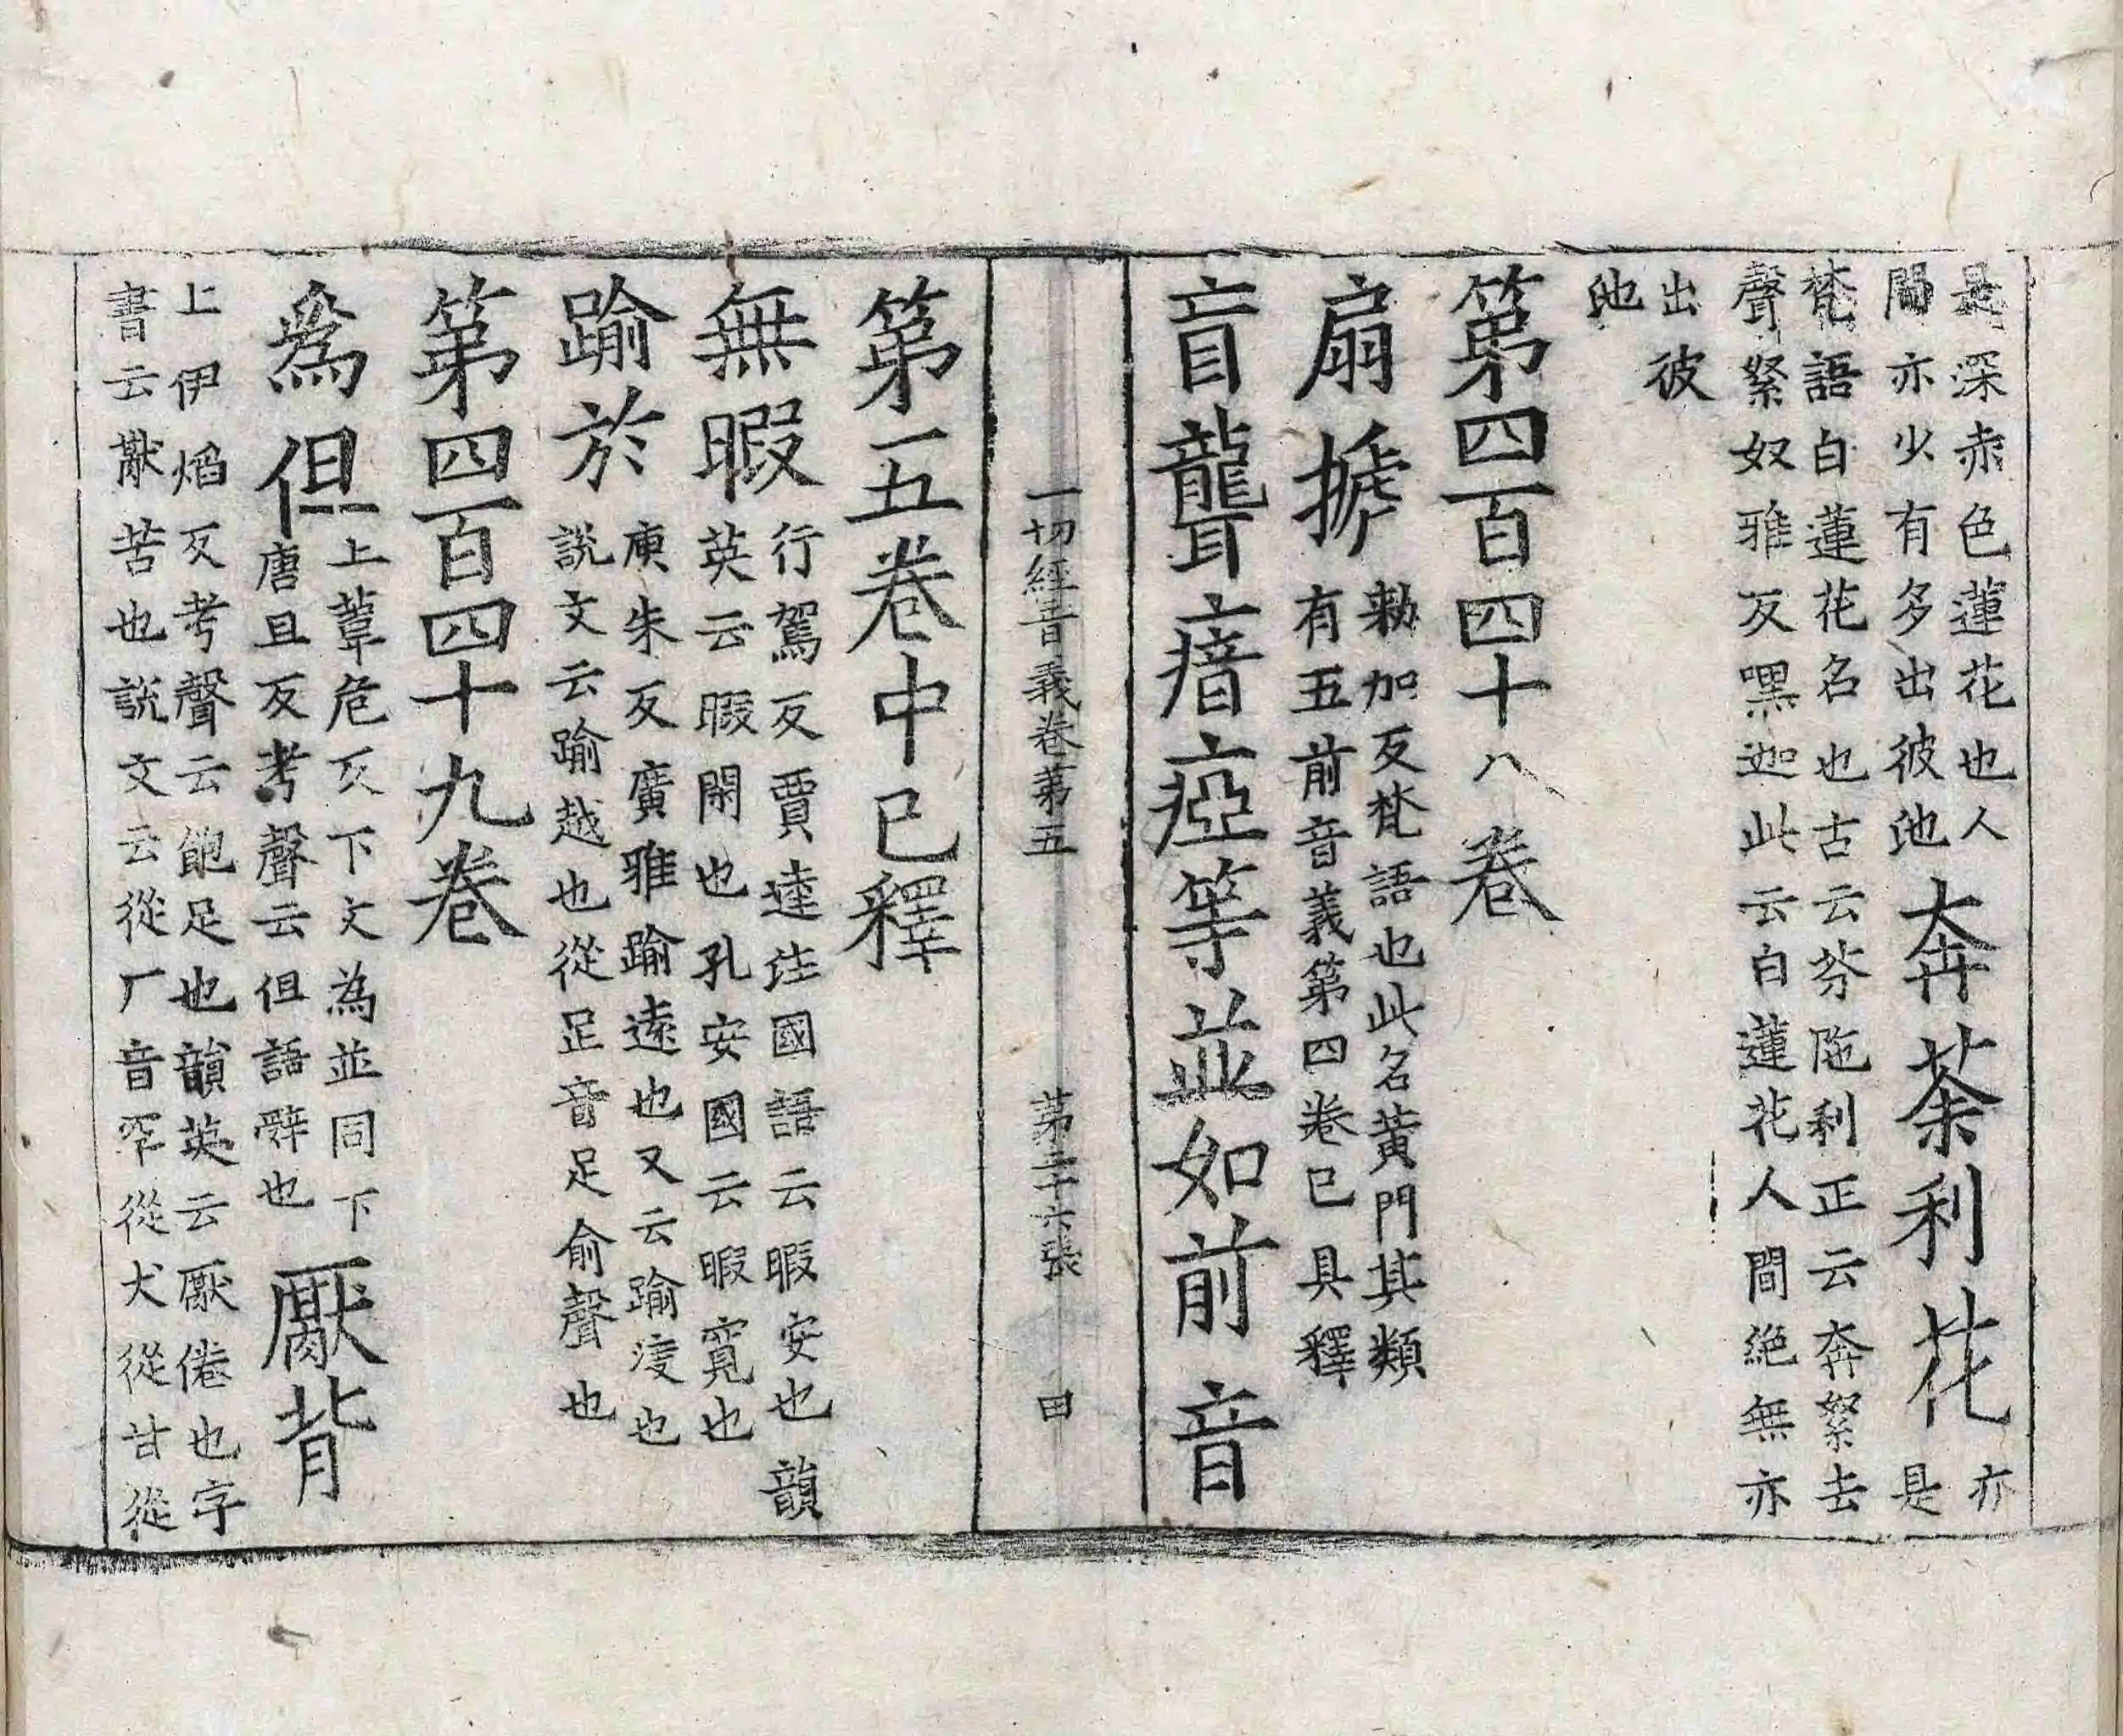 是深赤色蓮花也人
間亦少有多出彼池
奔荼利花
亦
是
梵語白蓮花名也古云芬陁利正云奔絮去
聲絮奴雅反嘿迦此云白蓮花人間絕無亦
出彼
池
第四百四十八卷
扇搋
勑加反梵語也此名黃門其類
有五前音義第四卷已具釋
盲聾瘖瘂等並如前音
一切經音義卷第五 第二十六張 田
第一五卷中已釋
無暇
行駕反賈逵注國語云暇安也韻
英云暇閑也孔安國云暇寬也
踰於
庾朱反廣雅踰遠也又云踰渡也
說文云踰越也從足音足俞聲也
第四百四十九卷
爲但
上葦危反下文為並同下
唐且反考聲云但語辭也
厭背
上伊焰反考聲云飽足也韻英云厭倦也字
書云猒苦也說文云從厂音罕從犬從甘從